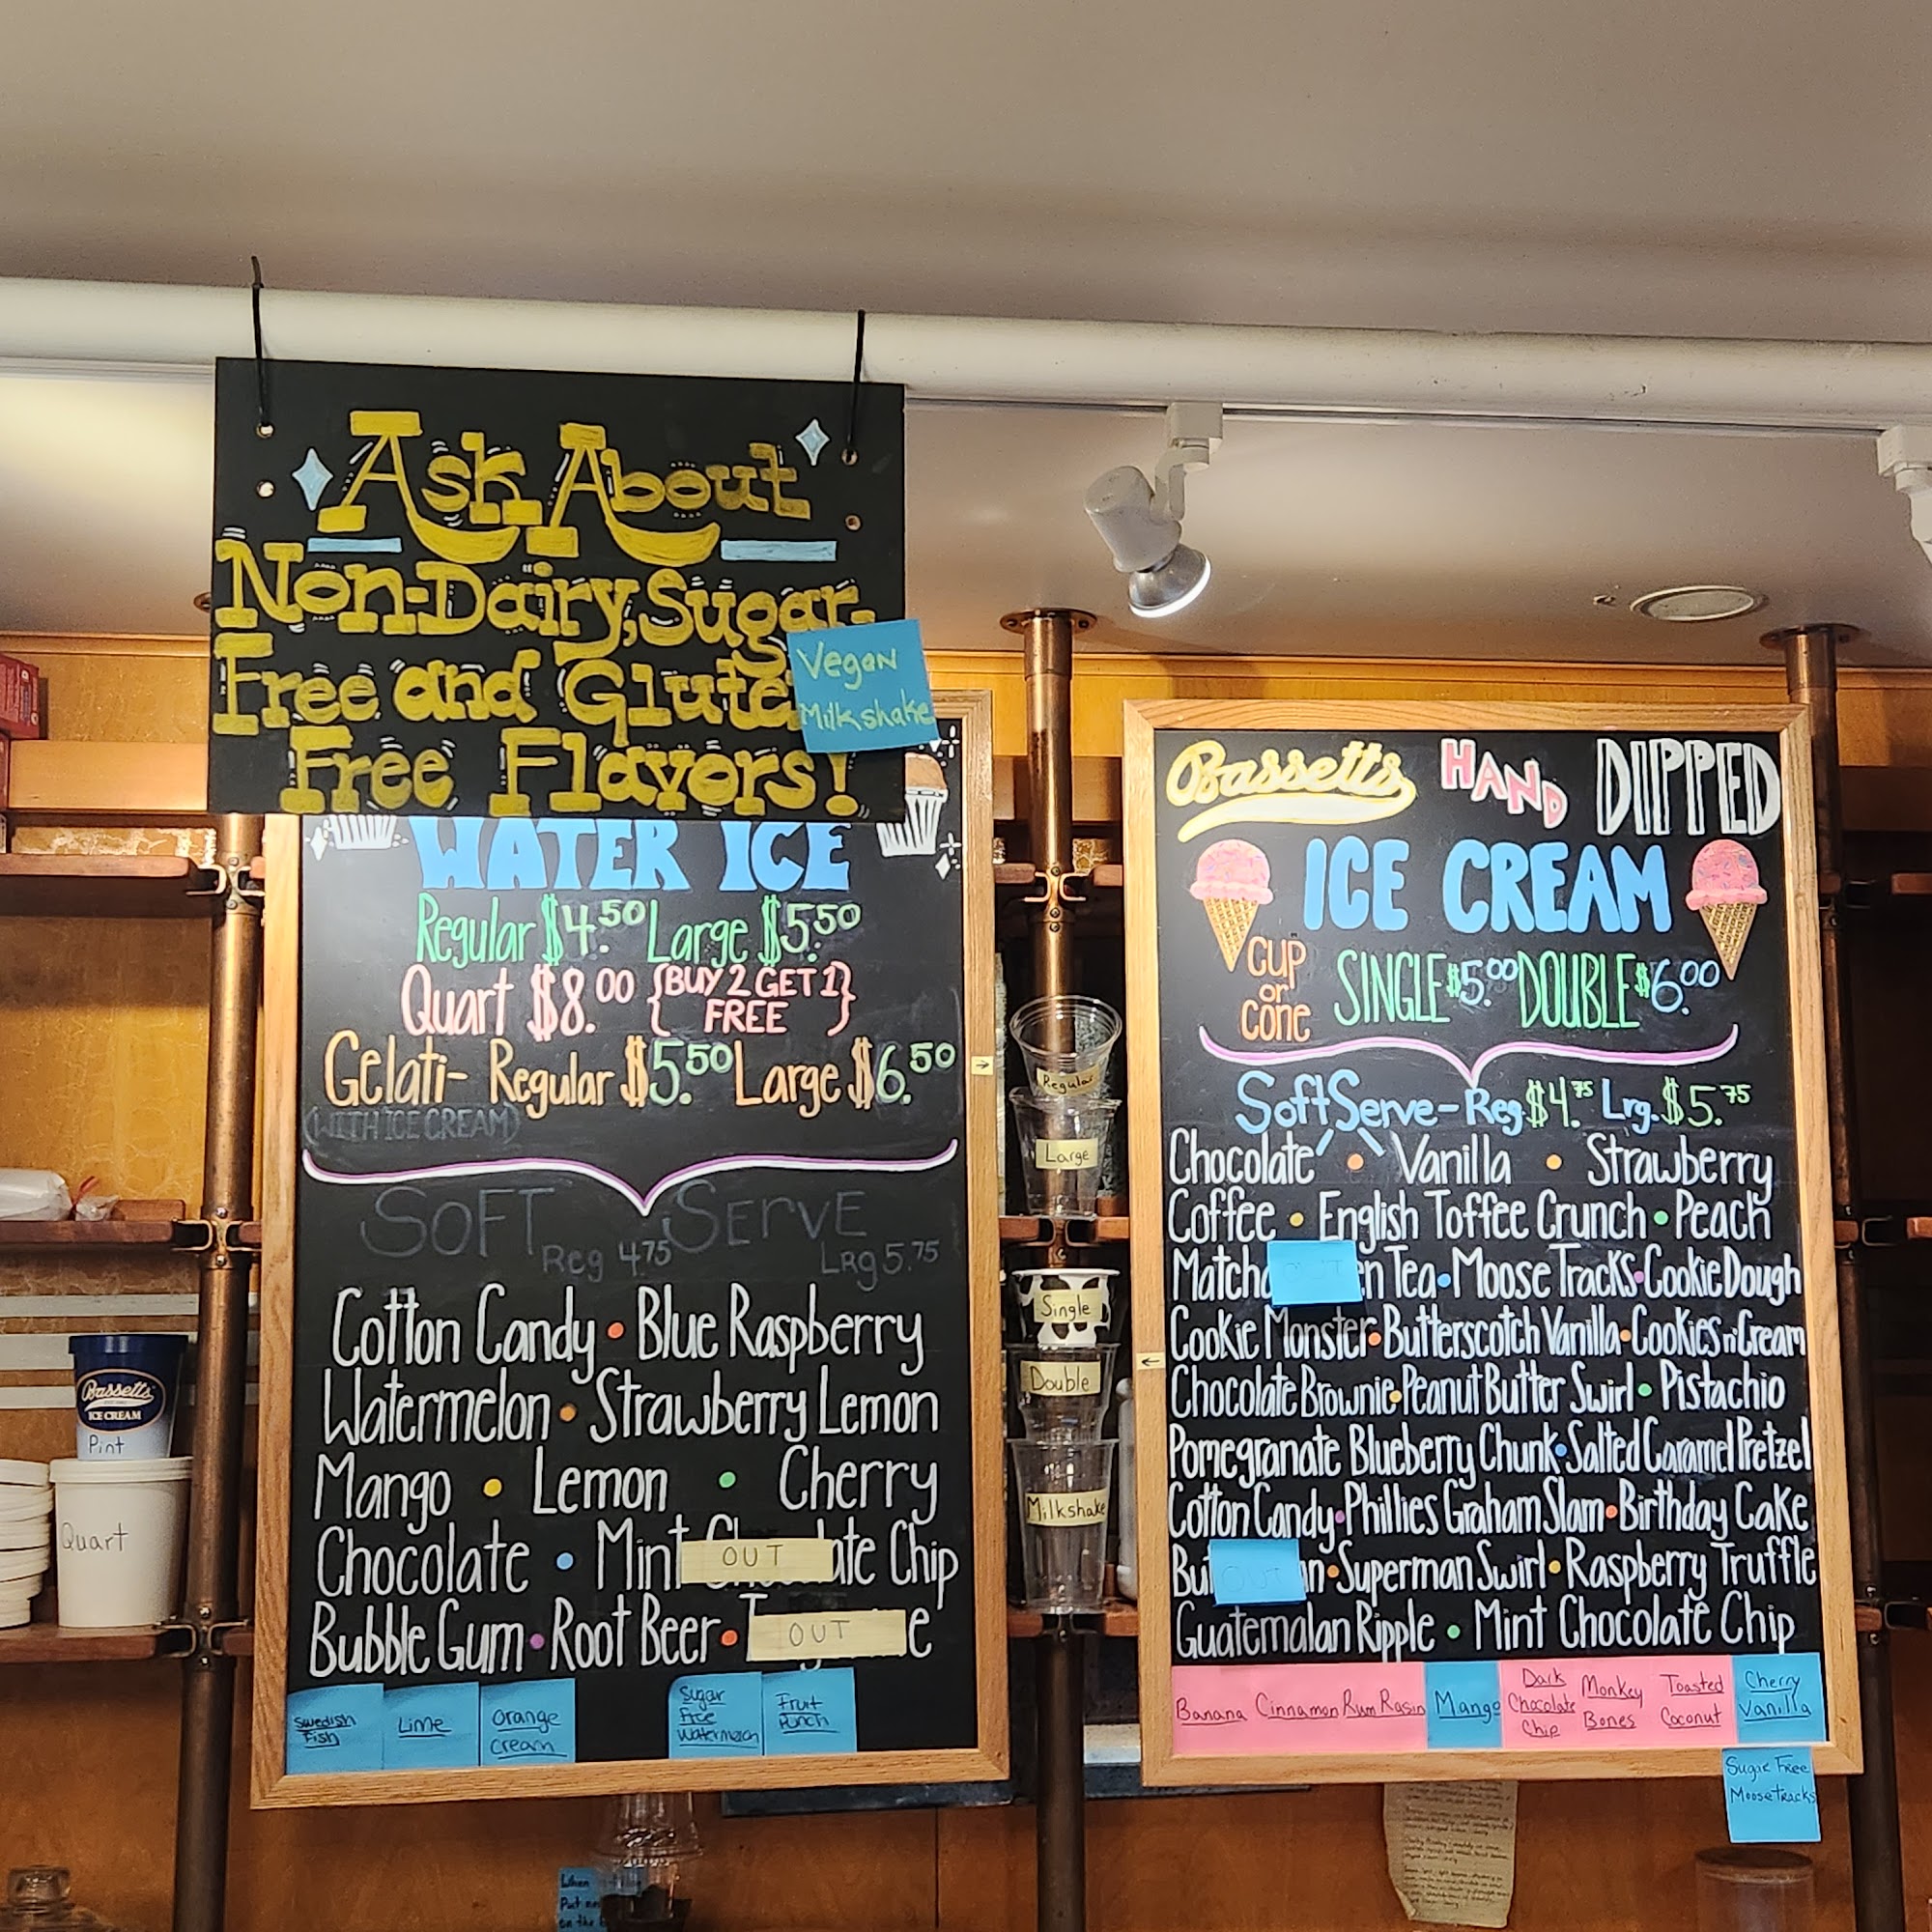 Ask About
Non-Dairy, Sugar-
Free and Gluten
Free Flavors!
Vegan
Milkshake
WATER ICE
Regular $4.50 Large $5.50
Quart $8.00 {BUY 2 GET 1}
FREE
Gelati- Regular $5.50 Large $6.50
(WITH ICE CREAM)
SOFT SERVE
Reg 4.75 LRg 5.75
Cotton Candy • Blue Raspberry
Watermelon • Strawberry Lemon
Mango • Lemon • Cherry
Chocolate • Mint Chocolate Chip
OUT
Bubble Gum • Root Beer •
OUT
Swedish
Fish
Lime
Orange
Cream
Sugar
Free
Watermelon
Fruit
Punch
Bassetts
ICE CREAM
Pint
Quart
Regular
Large
Single
Double
Milkshake
Bassetts HAND DIPPED
ICE CREAM
CUP
or
CONE
SINGLE $5.00 DOUBLE $6.00
Soft Serve - Reg $4.75 Lrg. $5.75
Chocolate • Vanilla • Strawberry
Coffee • English Toffee Crunch • Peach
Matcha OUT en Tea • Moose Tracks • Cookie Dough
Cookie Monster • Butterscotch Vanilla • Cookies n' Cream
Chocolate Brownie • Peanut Butter Swirl • Pistachio
Pomegranate Blueberry Chunk • Salted Caramel Pretzel
Cotton Candy • Phillies Graham Slam • Birthday Cake
But OUT n • Superman Swirl • Raspberry Truffle
Guatemalan Ripple • Mint Chocolate Chip
Banana
Cinnamon
Rum Rasin
Mango
Dark
Chocolate
Chip
Monkey
Bones
Toasted
Coconut
Cherry
Vanilla
Sugar Free
Moose Tracks
When
Put
on the